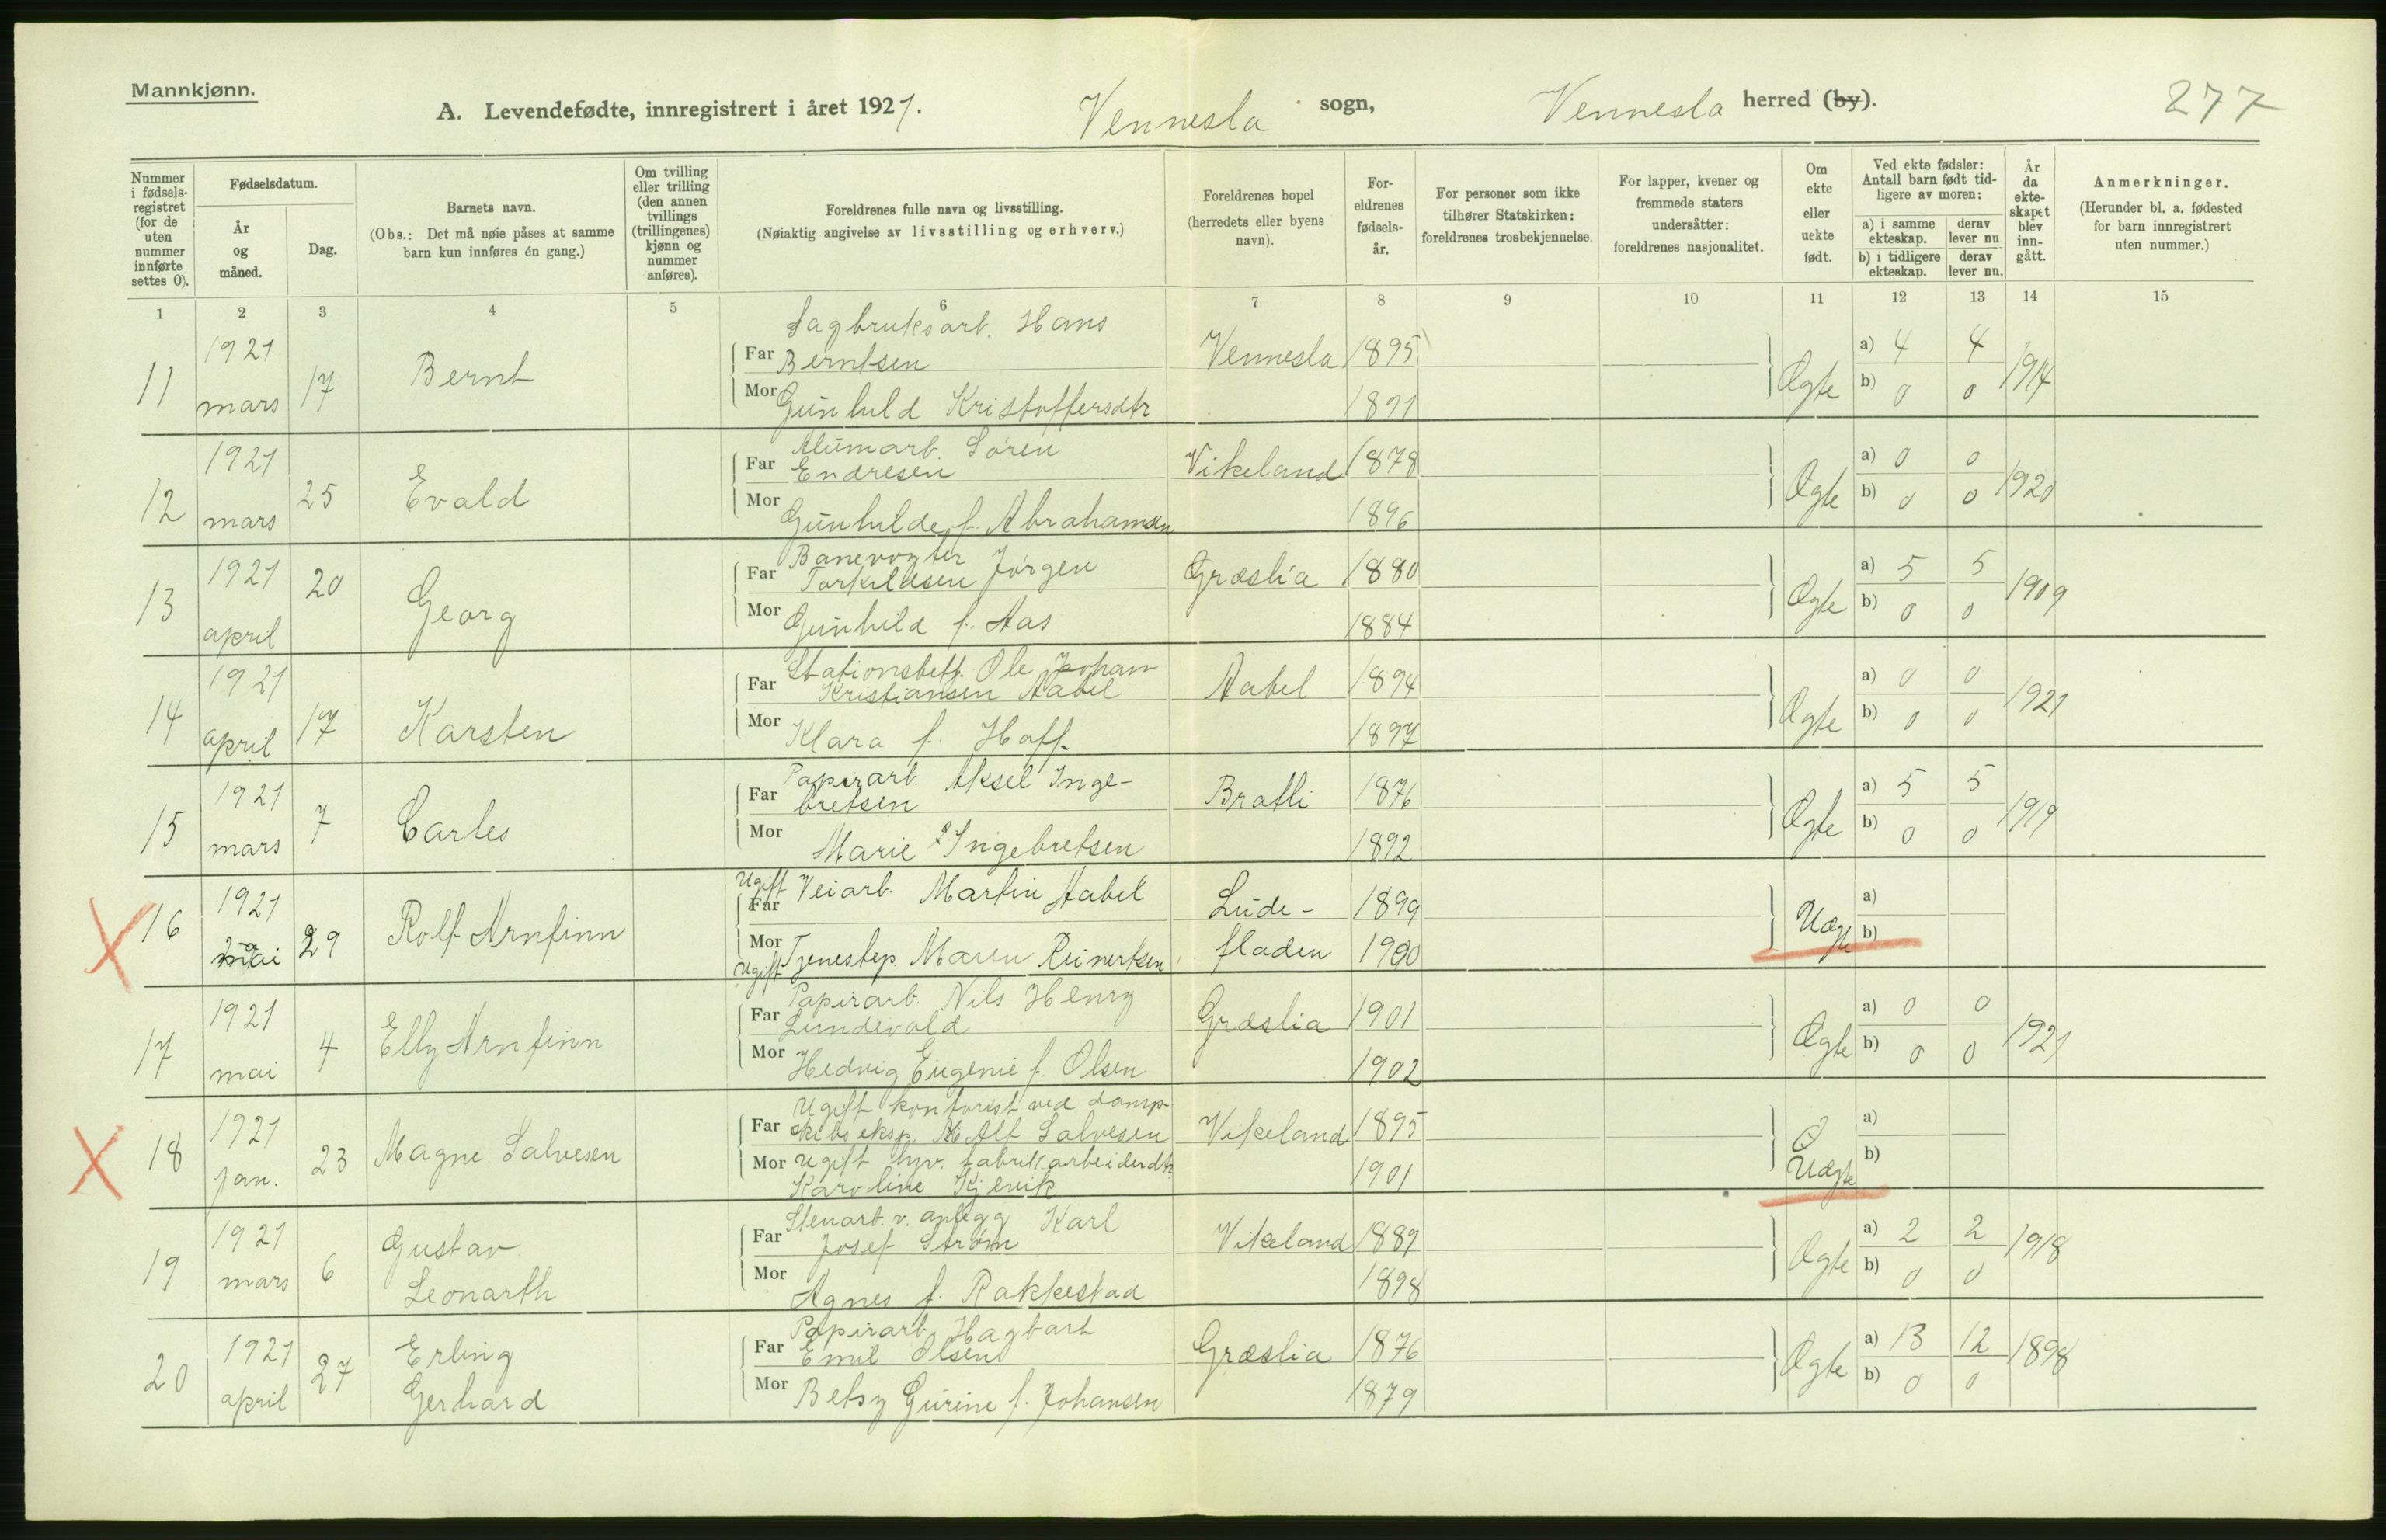 Mannkjønn.
A. Levendefødte, innregistrert i året 1921.
Vennesla sogn,
Vennesla herred (by).
277
Nummer i fødsels-registret (for de uten nummer innførte settes 0).
Fødselsdatum.
År og måned.
Dag.
Barnets navn.
(Obs.: Det må nøie påses at samme barn kun innføres én gang.)
Om tvilling eller trilling (den annen tvillings (trillingenes) kjønn og nummer anføres).
Foreldrenes fulle navn og livsstilling.
(Nøiaktig angivelse av livsstilling og erhverv.)
Foreldrenes bopel
(herredets eller byens navn).
For-eldrenes fødsels-år.
For personer som ikke tilhører Statskirken: foreldrenes trosbekjennelse.
For lapper, kvener og fremmede staters undersåtter: foreldrenes nasjonalitet.
Om ekte eller uekte født.
Ved ekte fødsler: Antall barn født tid-ligere av moren:
a) i samme ekteskap.
derav lever nu.
b) i tidligere ekteskap.
derav lever nu.
År da ekte-skapet blev inn-gått.
Anmerkninger.
(Herunder bl. a. fødested for barn innregistrert uten nummer.)
1 2 3 4 5 6 7 8 9 10 11 12 13 14 15
11 1921 mars 17 Bernt
Sagbruksarb. Hans
Far Berntsen Vennesla 1895
Mor Gunhild Kristoffersdtr 1891
Ægte a) 4 4 b) 0 0 1914
12 1921 mars 25 Evald
Alumarb. Søren
Far Endresen Vikeland 1878
Mor Gunhilde f. Abrahamsen 1896
Ægte a) 0 0 b) 0 0 1920
13 1921 april 20 Georg
Banevogter
Far Torkildsen Jørgen Græslia 1880
Mor Gunhild f. Aas 1884
Ægte a) 5 5 b) 0 0 1909
14 1921 april 17 Karsten
Stationsbetj. Ole Johan
Far Kristiansen Aabel Aabel 1894
Mor Klara f. Hoff 1897
Ægte a) 0 0 b) 0 0 1921
15 1921 mars 7 Carles
Papirarb. Aksel Inge-
Far bretsen Bratli 1876
Mor Marie Ingebretsen 1892
Ægte a) 5 5 b) 0 0 1919
16 1921 mai 29 Rolf Arnfinn
Ugift
Far Veiarb. Martin Aabel Lude- 1899
Mor Tjenestep. Maren Reinertsen fladen 1900
Ugift
Uægte a) b)
17 1921 mai 4 Elly Arnfinn
Papirarb. Nils Henry
Far Lundevold Græslia 1901
Mor Hedvig Eugenie f. Olsen 1902
Ægte a) 0 0 b) 0 0 1921
18 1921 jan. 23 Magne Salvesen
Ugift kontorist ved damp-
Far skibs eksp. Alf Salvesen Vikeland 1895
Mor Ugift hjv. fabrikarbeiderdtr. 1901
Karoline Kjevik
Uægte a) b)
19 1921 mars 6 Gustav Leonarth
Stenarb. v. anlegg Karl
Far Josef Strøm Vikeland 1887
Mor Agnes f. Rakkestad 1898
Ægte a) 2 2 b) 0 0 1918
20 1921 april 27 Erling Gerhard
Papirarb. Hagbart
Far Emil Olsen Græslia 1876
Mor Betsy Gurine f. Johansen 1879
Ægte a) 13 12 b) 0 0 1898